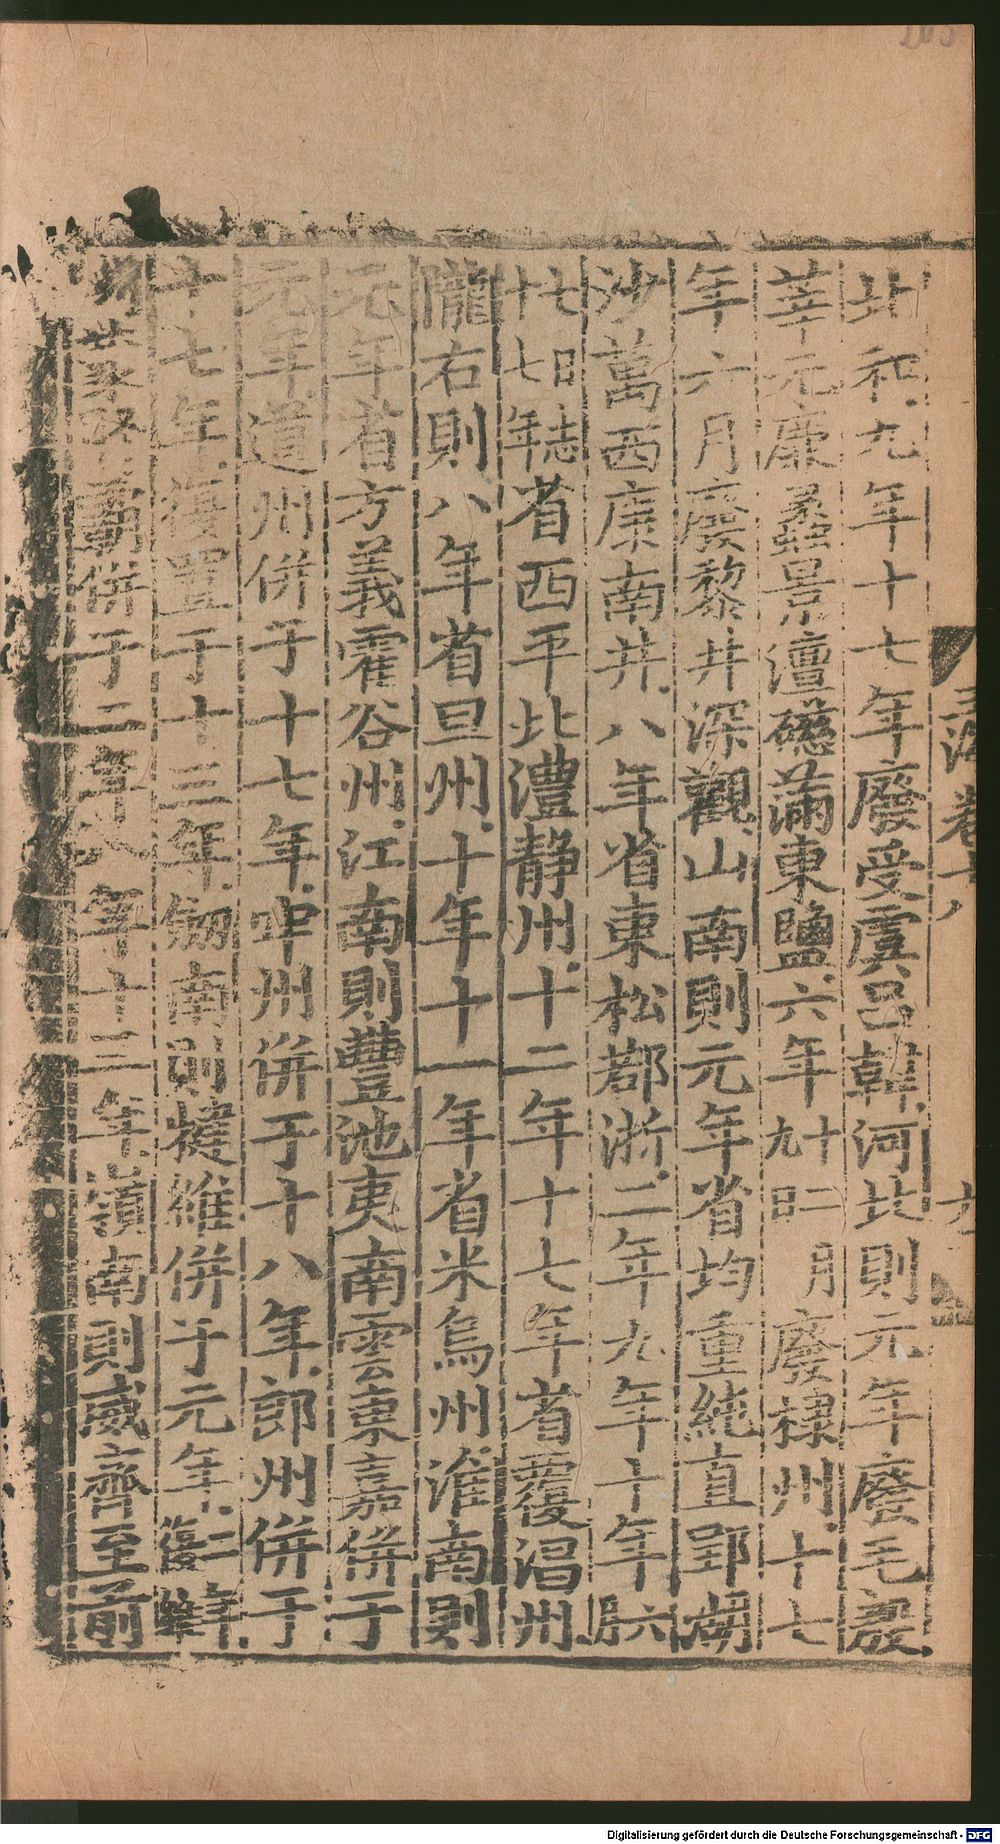 玉海 卷十八 九
北和九年十七年廢受虞呂韓河北則元年廢毛殷
莘元康蠡景澶磁蒲東鹽六年十二月九日廢棣州十七
年六月廢黎井深觀山南則元年省均重純直郢湖
沙萬西康南井八年省東松都浙二年九年十年六月
七日十七年誌省西平北澧静州十二年十七年省覆浥州
隴右則八年省旦州十年十一年省米烏州淮南則
元年省方義霍谷州江南則豐池夷南雲東嘉併于
元年道州併于十七年中州併于十八年郎州併于
十七年復置于十三年劒南則維併于元年二年復
霸併于二年年十三年嶺南則威齊至前
Digitalisierung gefördert durch die Deutsche Forschungsgemeinschaft - DFG